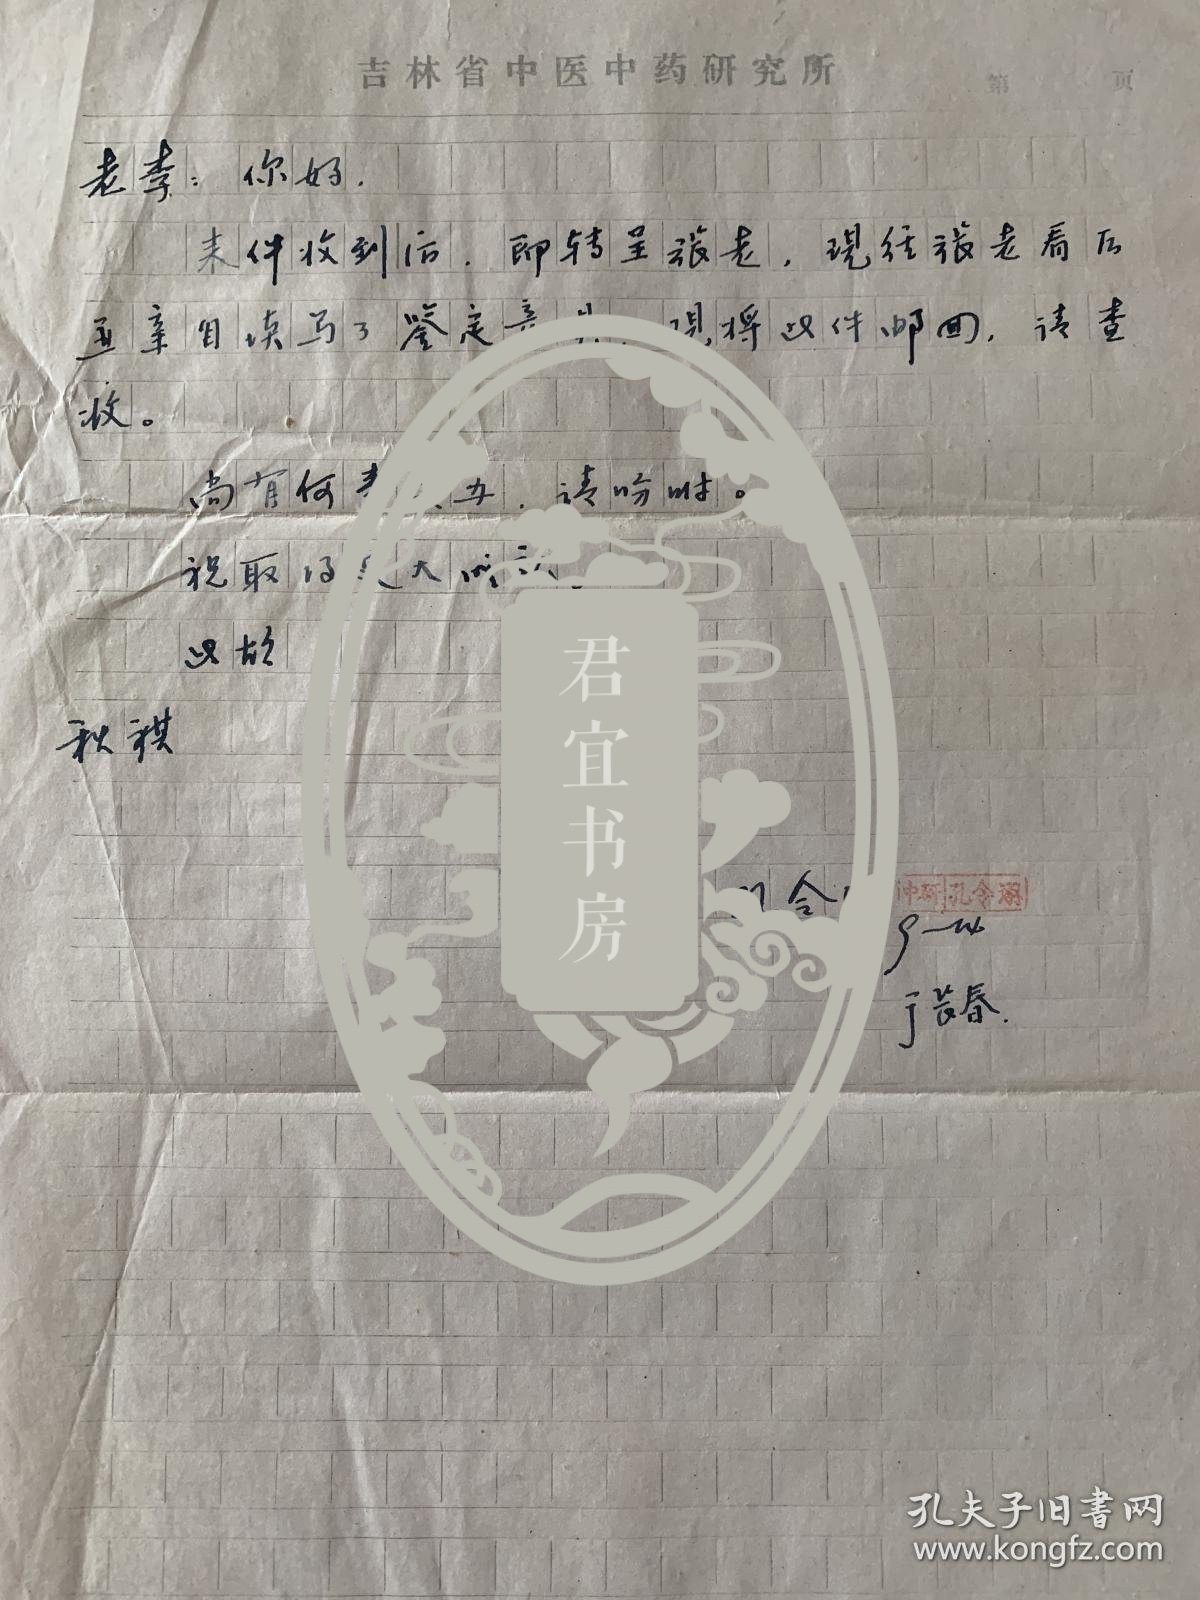 吉林省中医中药研究所
第 页
老李：你好.
来件收到后，即转呈张老，现经张老看后
并亲自填写了鉴定意见，现将此件邮回，请查
收。
尚有何 办，请吩咐。
祝取得 大
此致
秋祺
令
孔令
于长春.
君宜书房
孔夫子旧书网
www.kongfz.com